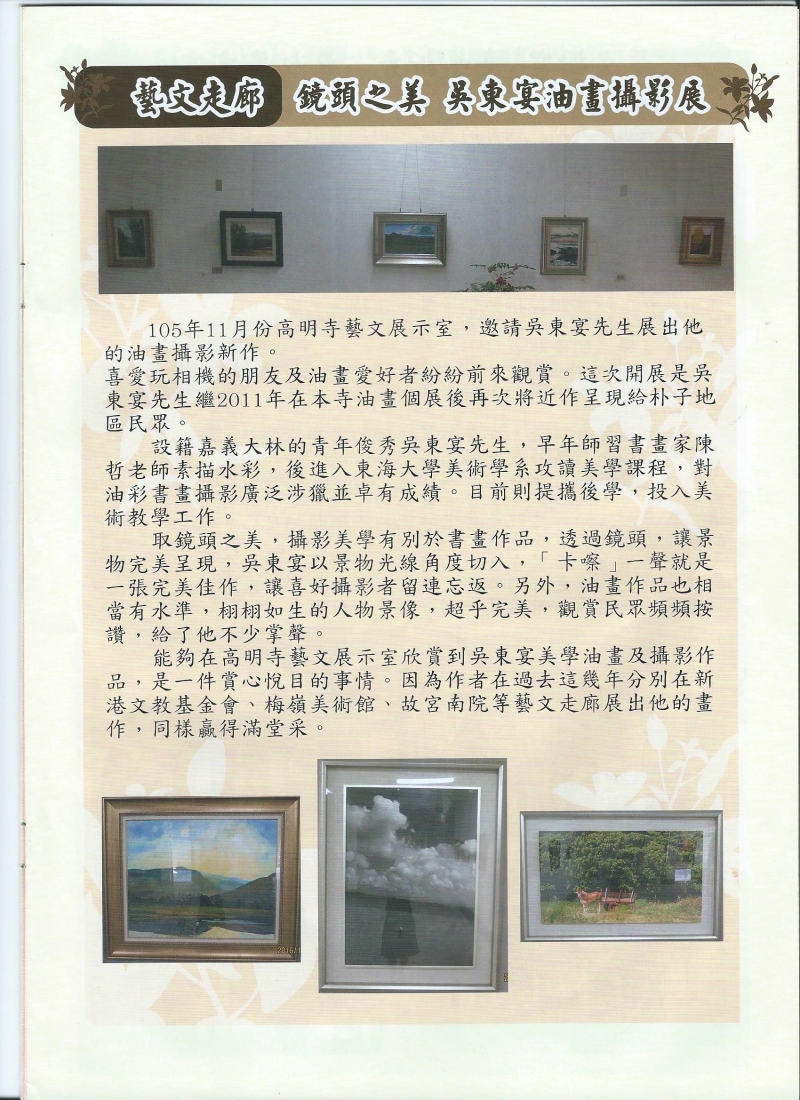 藝文走廊 鏡頭之美 吳東宴油畫攝影展
105年11月份高明寺藝文展示室，邀請吳東宴先生展出他
的油畫攝影新作。
喜愛玩相機的朋友及油畫愛好者紛紛前來觀賞。這次開展是吳
東宴先生繼2011年在本寺油畫個展後再次將近作呈現給朴子地
區民眾。
設籍嘉義大林的青年俊秀吳東宴先生，早年師習書畫家陳
哲老師素描水彩，後進入東海大學美術學系攻讀美學課程，對
油彩書畫攝影廣泛涉獵並卓有成績。目前則提攜後學，投入美
術教學工作。
取鏡頭之美，攝影美學有別於書畫作品，透過鏡頭，讓景
物完美呈現，吳東宴以景物光線角度切入，「卡嚓」一聲就是
一張完美佳作，讓喜好攝影者留連忘返。另外，油畫作品也相
當有水準，栩栩如生的人物景像，超乎完美，觀賞民眾頻頻按
讚，給了他不少掌聲。
能夠在高明寺藝文展示室欣賞到吳東宴美學油畫及攝影作
品，是一件賞心悅目的事情。因為作者在過去這幾年分別在新
港文教基金會、梅嶺美術館、故宮南院等藝文走廊展出他的畫
作，同樣贏得滿堂采。